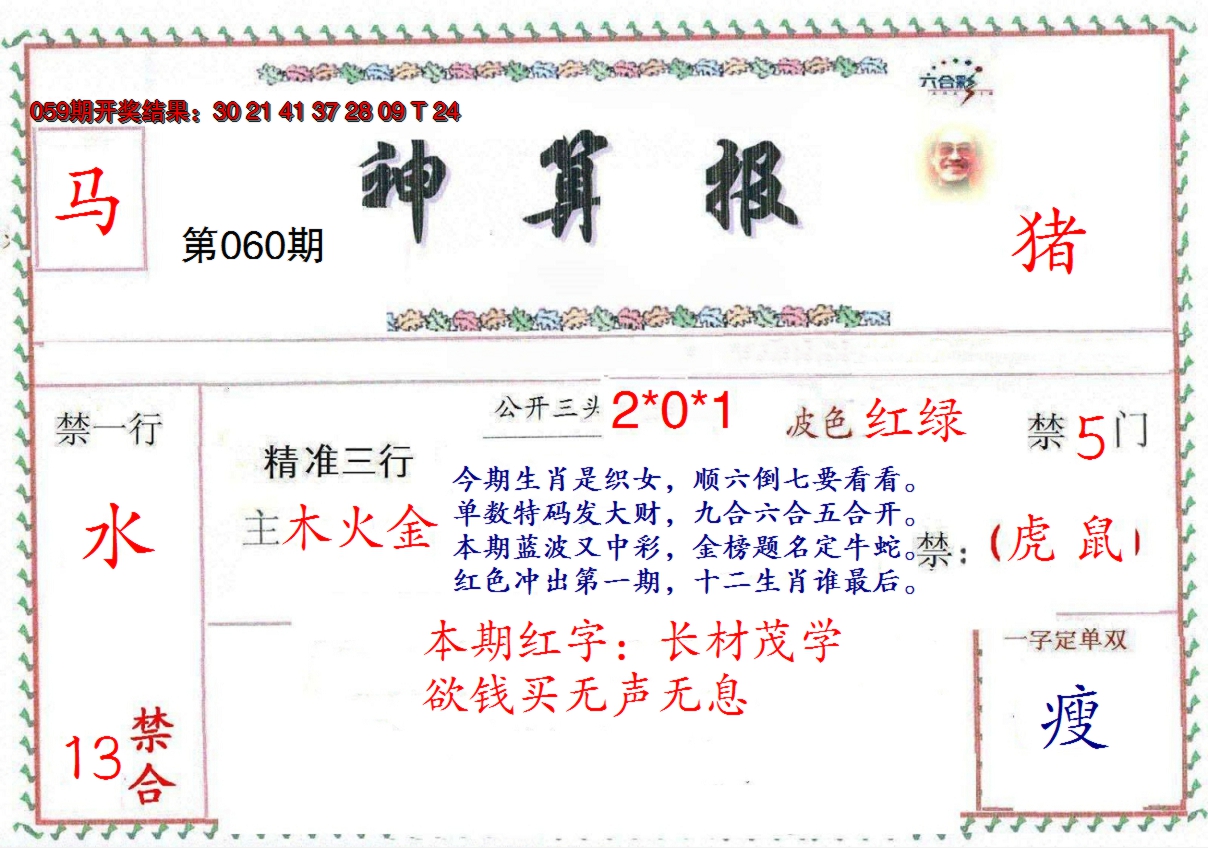 六合彩
059期开奖结果：30 21 41 37 28 09 T 24
神算报
马
第060期
猪
公开三头 2*0*1
波色 红绿
禁一行
禁5门
精准三行
主木火金
今期生肖是织女，顺六倒七要看看。
单数特码发大财，九合六合五合开。
本期蓝波又中彩，金榜题名定牛蛇。
红色冲出第一期，十二生肖谁最后。
水
禁：（虎 鼠）
本期红字：长材茂学
欲钱买无声无息
一字定单双
瘦
13禁合